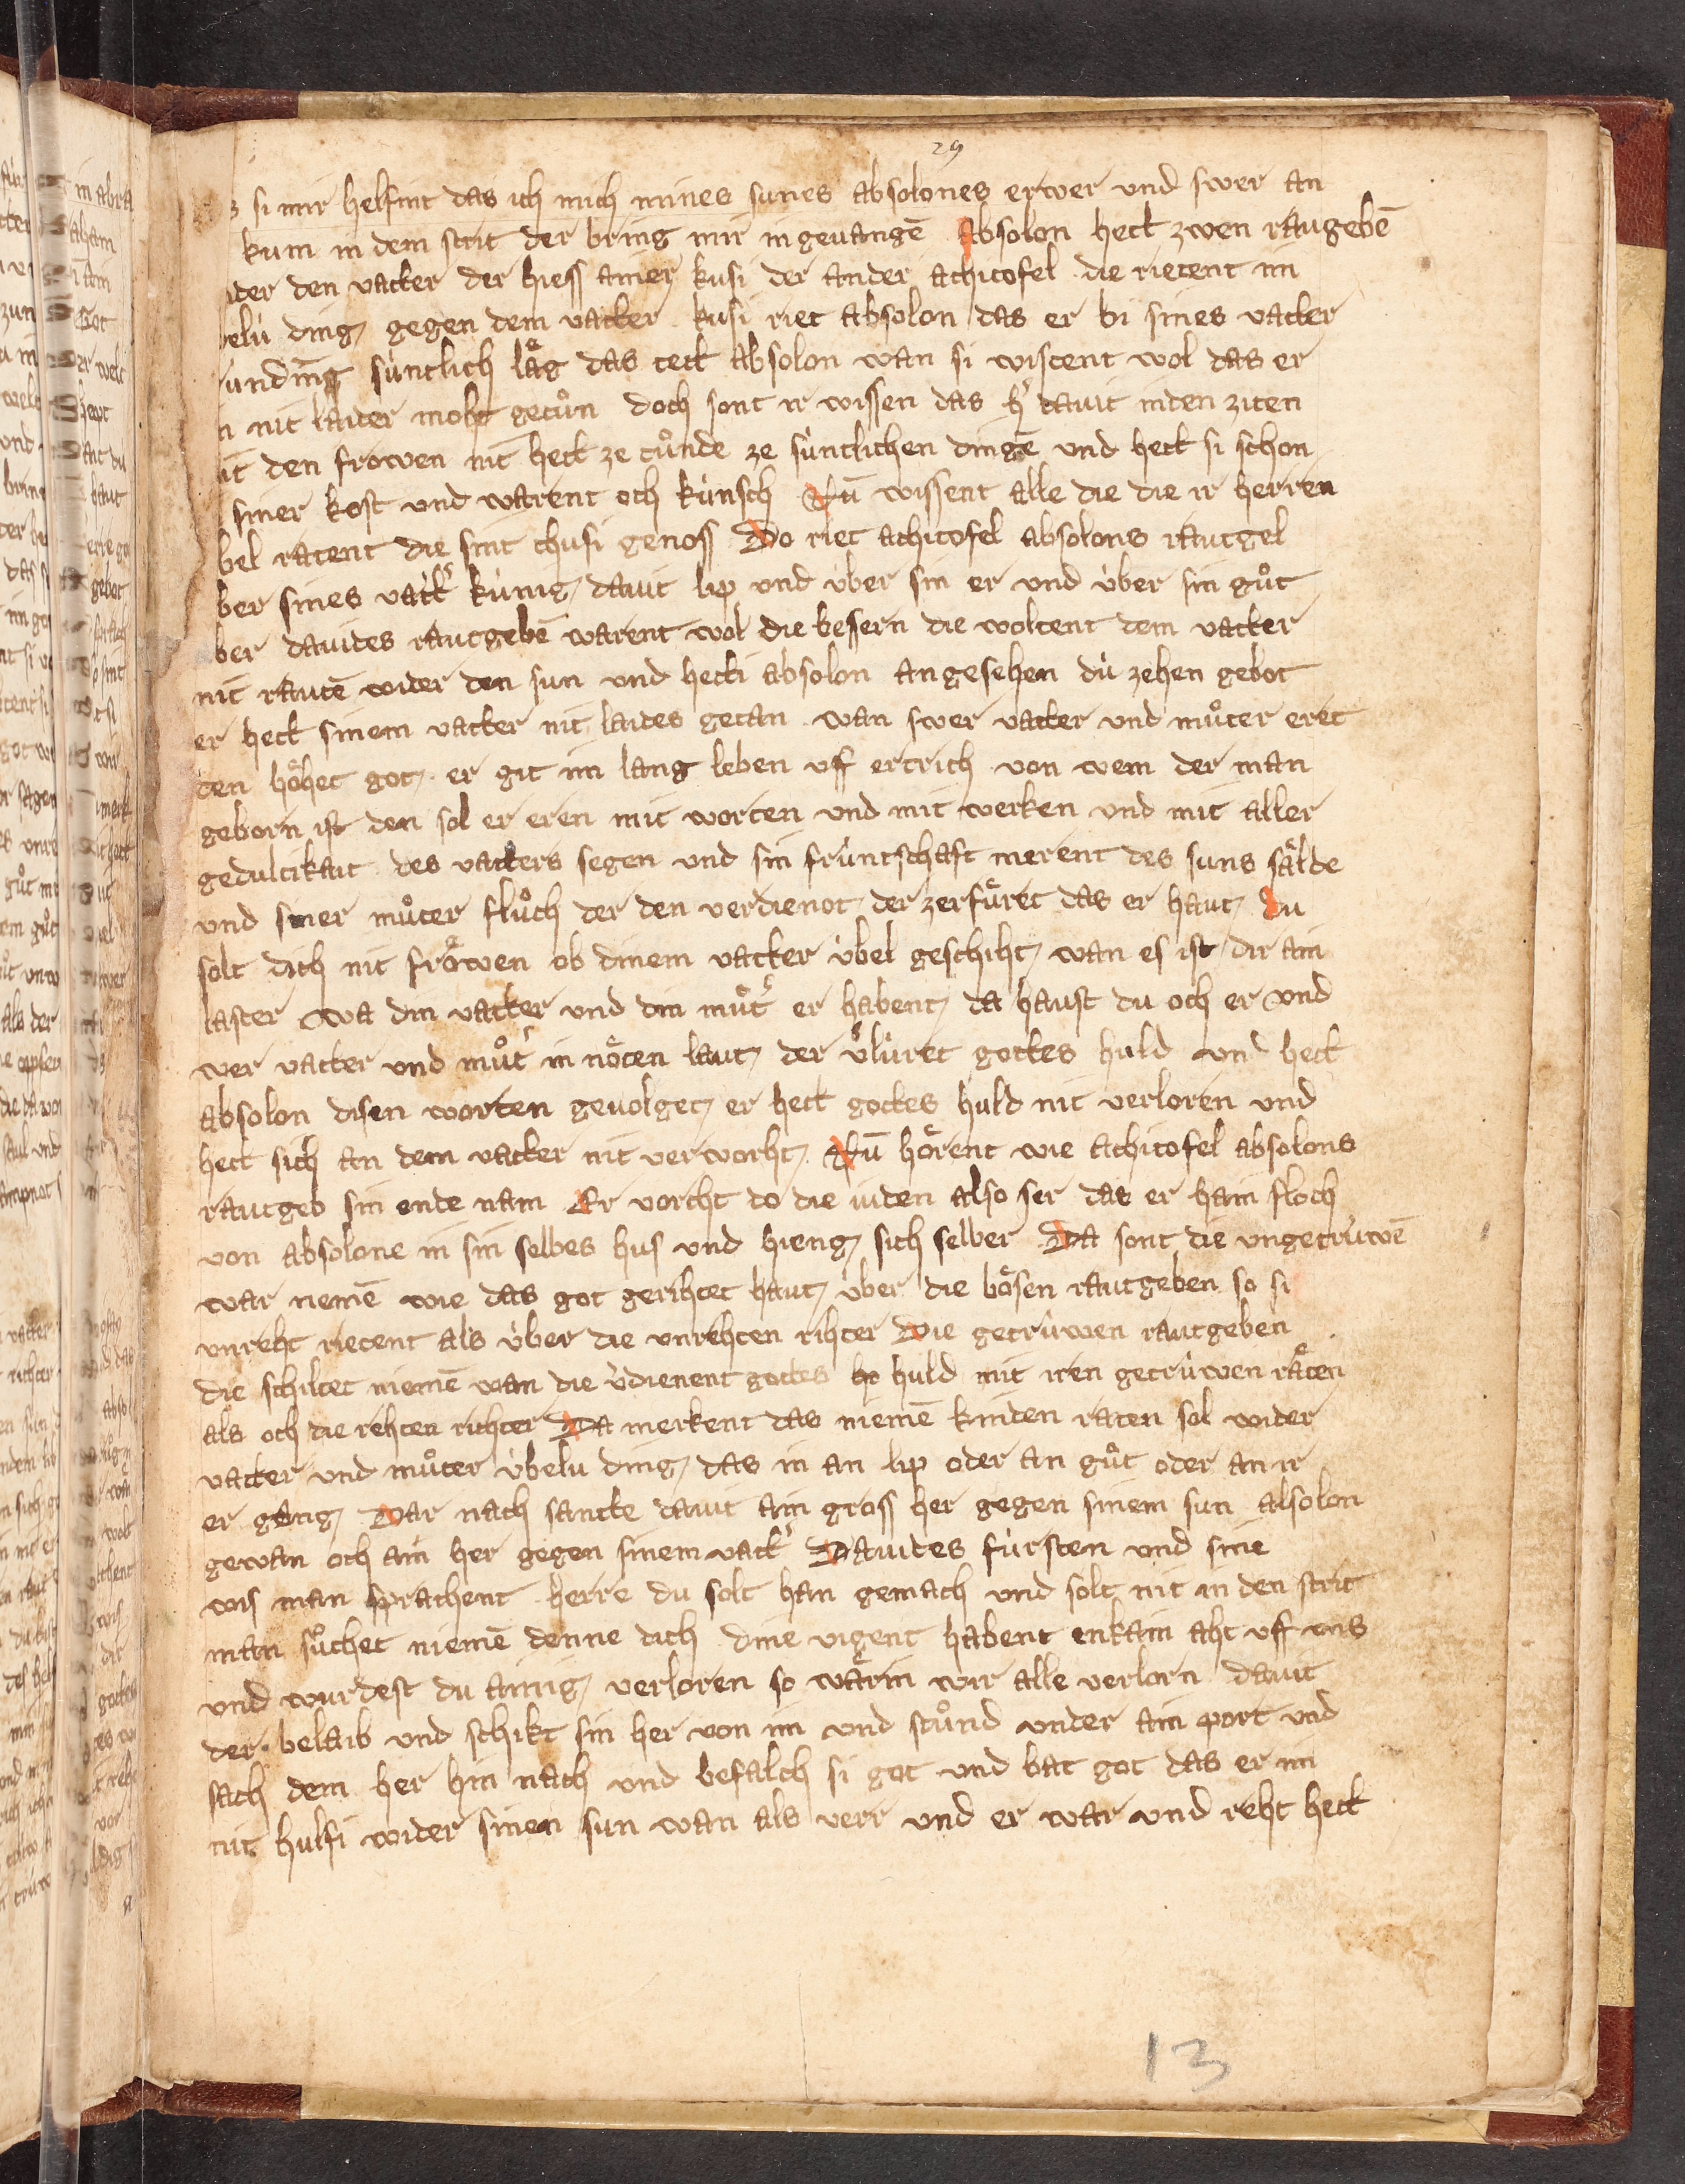 29
si mir helfint das ich mich mines sunes absolones erwer und swer an
kum in dem strit der bring mir in geuangē Absolon hett zwen raugebē
ider den vatter der hiess ainer kusi der ander achitofel die rietent im
belú ding gegen dem vatter kusi riet absolon das er bi sines vatter
súntlich låg das tett absolon wan si wistent wol das er
nit laider moht getůn doch sont ir wissen das h͛ dauit inden ziten
it den frowen nit hett ze tůnde ze súntlichen dingē und hett si schon
siner kost und warent och kúnsch Nū wissent alle die die ir herren
bel ratent die sint chusi genoss Do riet achitofel absolons rautgel
ber sines vatt͛ kúnig dauit lip und úber sin er und úber sin gůt
ber dauides rautgebē warent wol die bessern die woltent dem vatter
nit rautē wider den sun und hetti absolon angesehen dú zehen gebot
er hett sinem vatter nit laides getan wan swer vatter und můter eret
den hőhet got er git im lang leben uff ertrich von wem der man
geborn ist den sol er eren mit worten und mit werken und mit aller
gedultikait des vatters segen und sin frúntschaft merent des suns sålde
und siner můter flůch der den verdienot der zerfůret das er haut Du
solt dich nit fröwen ob dinem vatter úbel geschiht wan es ist dir ain
laster wa din vatter und din můt͛ er habent da haust du och er und
wer vatter und můt͛ in nöten laut der v͛lúret gottes huld und hett
absolon disen worten geuolget er hett gottes huld nit verloren und
hett sich an dem vatter nit verworht Nū hörent wie achitofel absolons
rautgeb sin ende nam Er vorcht do die iuden also ser das er hain floch
von absolone in sin selbes hus und hieng sich selber Da sont die ungetrúwē
war nemē wie das got gerihtet haut úber die bösen rautgeben so si
unreht rietent als úber die unrehten rihter Die getrúwen rautgeben
die schiltet niemē wan die v͛dienent gottes huld mit iren getrúwen råten
als och die rehten richter Da merkent das niemē kinden raten sol wider
vatter und můter úbelu ding das in an lip oder an gůt oder an ir
er gang Dar nach sante dauit ain gross her gegen sinem sun absolon
gewan och ain her gegen sinem vatt͛ Dauides fúrsten und sine
wis man sprachent herre du solt han gemach und solt nit in den strit
man sůchet niemē denne dich dine vigent habent enkain aht uff uns
und wurdest du ainig verloren so wårin wir alle verlorn dauit
der belaib und schikt sin her von im und stůnd under ain port und
sach dem her hin nach und befalch si got und bat got das er im
nit hulfi wider sinen sun wan als verr und er war und reht hett
13